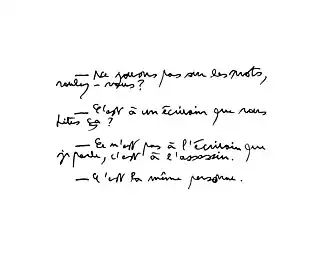 — Ne jouons pas sur les mots,
voulez-vous ?
— C'est à un écrivain que vous
dites ça ?
— Ce n'est pas à l'écrivain que
je parle, c'est à l'assassin.
— C'est la même personne.